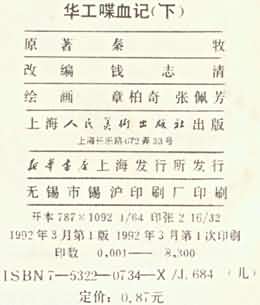 华工喋血记(下)
原著 秦牧
改编 钱志清
绘画 章柏奇 张佩芳
上海人民美術出版社出版
上海长乐路672弄33号
新华書店上海发行所发行
无锡市锡沪印刷厂印刷
开本787×1092 1/64 印张2 16/32
1992年3月第1版 1992年3月第1次印刷
印数 0,001—— 8,300
ISBN7—5322—0734—X/J.684 (儿)
定价: 0.87元